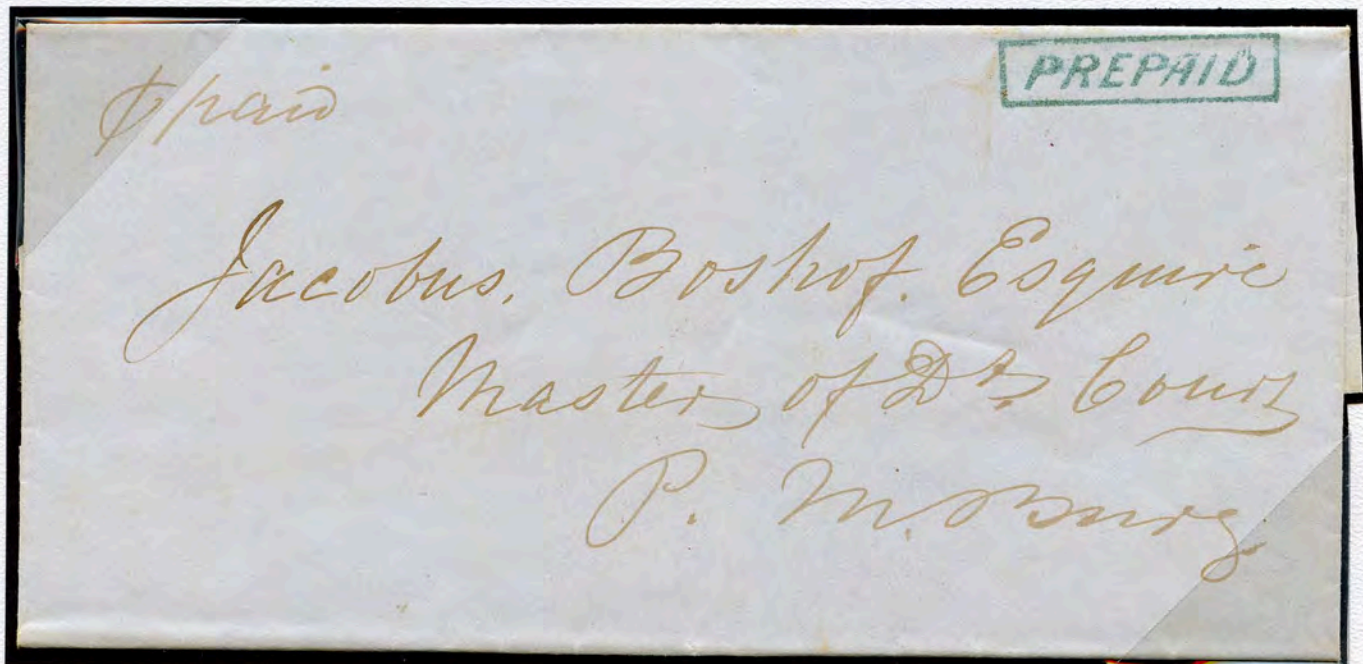 paid
PREPAID
Jacobus. Boshof. Esquire
Master of Dt. Court
P. M. Burg